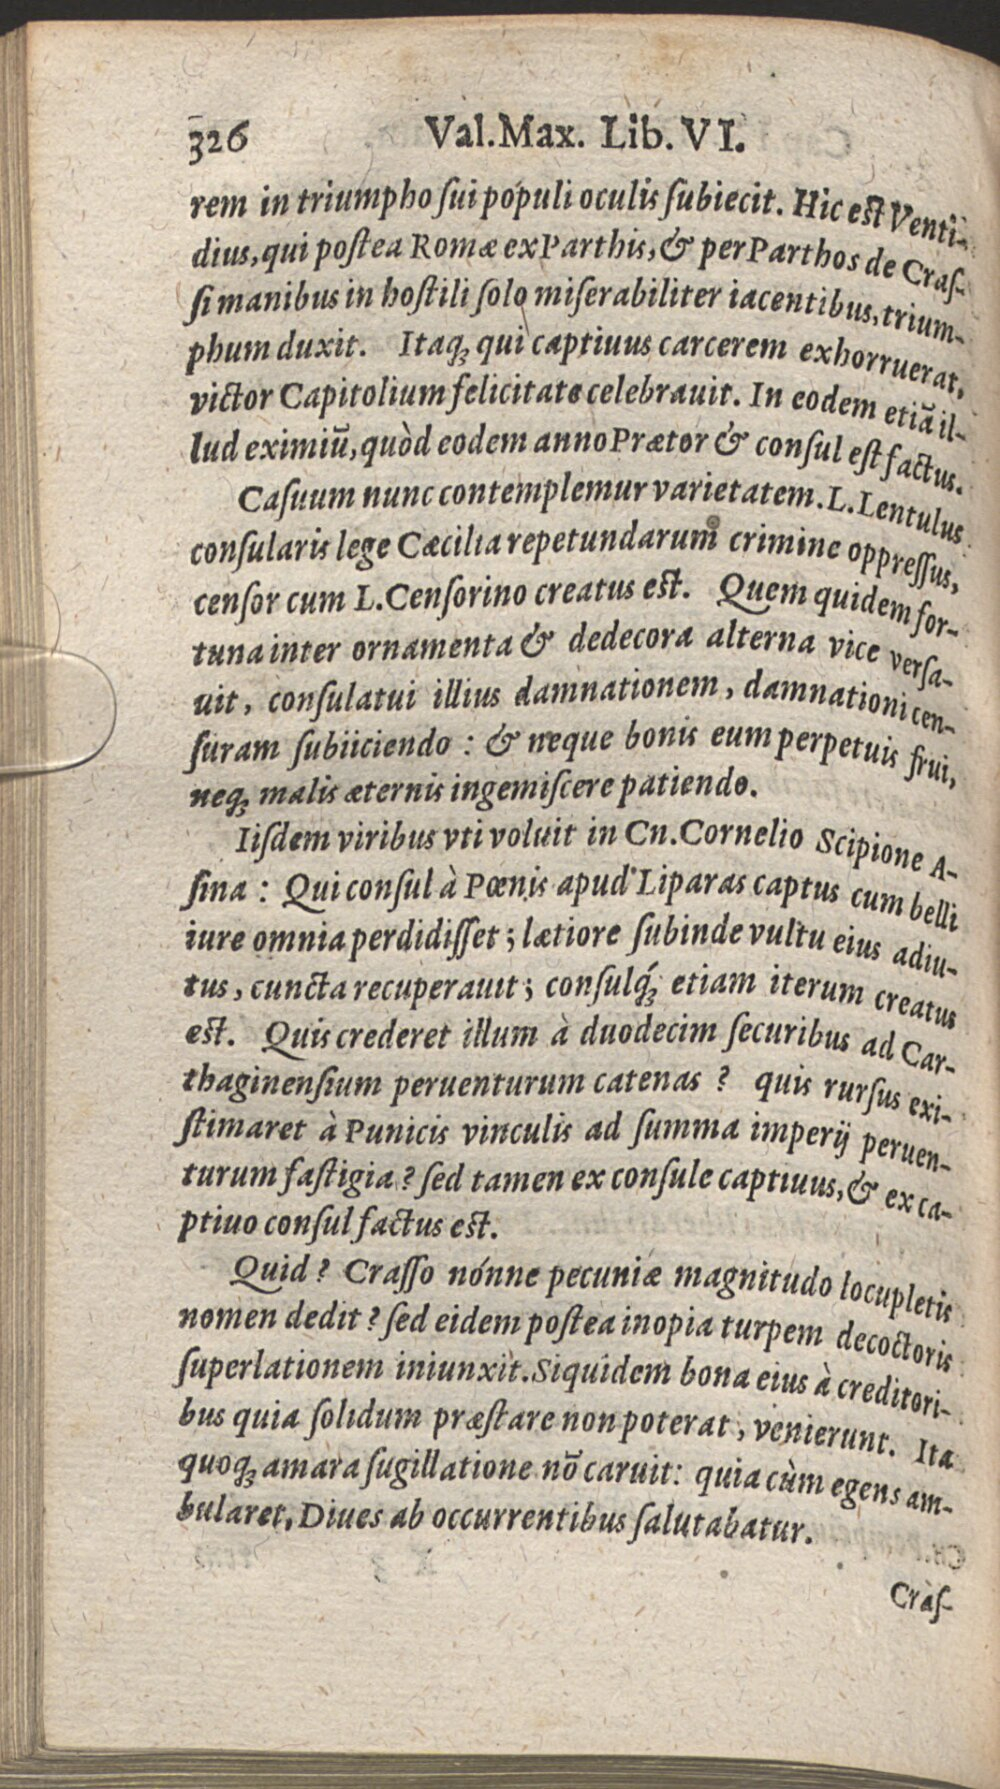 326 Val. Max. Lib. VI.
rem in triumpho ſui populi oculis ſubiecit. Hic eſt Venti-
dius, qui poſtea Romæ ex Parthis, & per Parthos de Craſ-
ſi manibus in hoſtili ſolo miſerabiliter iacentibus, trium-
phum duxit. Itaq; qui captiuus carcerem exhorruerat,
victor Capitolium felicitate celebrauit. In eodem etiã il-
lud eximiũ, quòd eodem anno Prætor & conſul eſt factus.
Caſuum nunc contemplemur varietatem. L. Lentulus
conſularis lege Cæcilia repetundarum crimine oppreſſus,
cenſor cum L. Cenſorino creatus eſt. Quem quidem for-
tuna inter ornamenta & dedecora alterna vice verſa-
uit, conſulatui illius damnationem, damnationi cen-
ſuram ſubiiciendo : & neque bonis eum perpetuis frui,
neq; malis æternis ingemiſcere patiendo.
Iiſdem viribus vti voluit in Cn. Cornelio Scipione A-
ſina : Qui conſul à Pœnis apud Liparas captus cum belli
iure omnia perdidiſſet ; lætiore ſubinde vultu eius adiu-
tus, cuncta recuperauit ; conſulq́; etiam iterum creatus
eſt. Quis crederet illum à duodecim ſecuribus ad Car-
thaginenſium peruenturum catenas ? quis rurſus exi-
ſtimaret à Punicis vinculis ad ſumma imperij peruen-
turum faſtigia ? ſed tamen ex conſule captiuus, & ex ca-
ptiuo conſul factus eſt.
Quid ? Craſſo nónne pecuniæ magnitudo locupletis
nomen dedit ? ſed eidem poſtea inopia turpem decoctoris
ſuperlationem iniunxit. Siquidem bona eius à creditori-
bus quia ſolidum præſtare non poterat, venierunt. Ita
quoq; amara ſugillatione nõ caruit: quia cùm egens am-
bularet, Diues ab occurrentibus ſalutabatur.
Craſ-